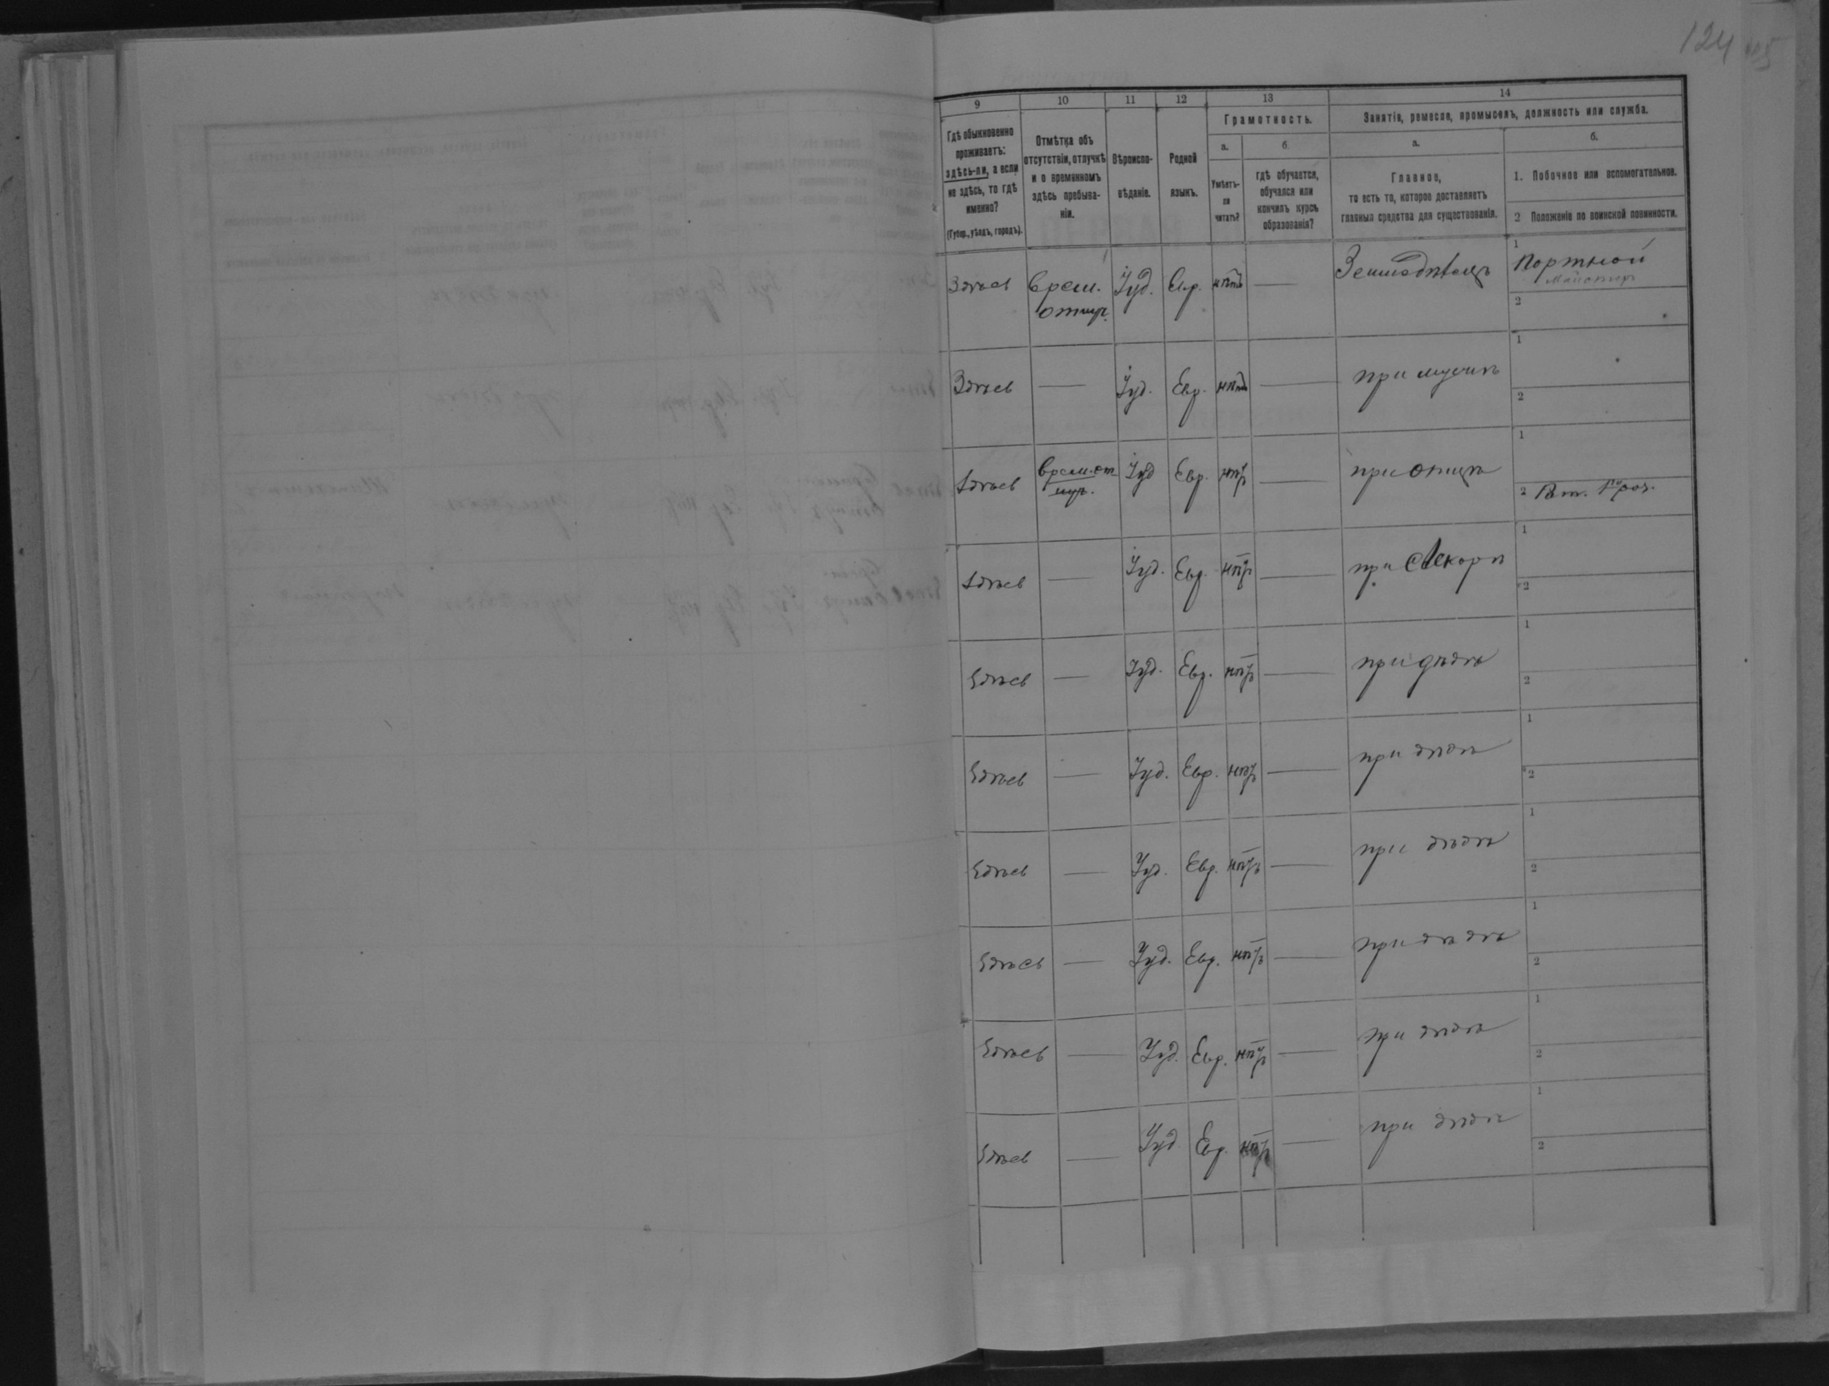 124
9 10 11 12 13 14
Гдѣ обыкновенно
проживаетъ:
здѣсь-ли, а если
не здѣсь, то гдѣ
именно?
(Губер., уѣздъ, городъ).
Отмѣтка объ
отсутствіи, отлучкѣ
и о временномъ
здѣсь пребыва-
ніи.
Вѣроиспо-
вѣданіе.
Родной
языкъ.
Грамотность.
а.
Умѣетъ-
ли
читать?
б
гдѣ обучается,
обучался или
кончилъ курсъ
образованія?
Занятія, ремесла, промыселъ, должность или служба.
а.
Главное,
то есть то, которое доставляетъ
главныя средства для существованія.
б.
1. Побочное или вспомогательное.
2 Положеніе по воинской повинности.
Здѣсь Врем. Іуд. Евр. нѣтъ — Земледѣлецъ 1 Портной
отлуч. 2
Здѣсь — Іуд. Евр. нѣтъ — при мужѣ 1
2
Здѣсь Врем. от Іуд Евр. нѣтъ — при отцѣ 1
луч. 2 Рат. 1го раз.
Здѣсь — Іуд. Евр. нѣтъ — при свекорѣ 1
2
Здѣсь — Іуд. Евр. нѣтъ — при дѣдѣ 1
2
Здѣсь — Іуд. Евр. нѣтъ — при дѣдѣ 1
2
Здѣсь — Іуд. Евр. нѣтъ — при дѣдѣ 1
2
Здѣсь — Іуд. Евр. нѣтъ — при дѣдѣ 1
2
Здѣсь — Іуд. Евр. нѣтъ — при дѣдѣ 1
2
Здѣсь — Іуд Евр. нѣтъ — при дѣдѣ 1
2